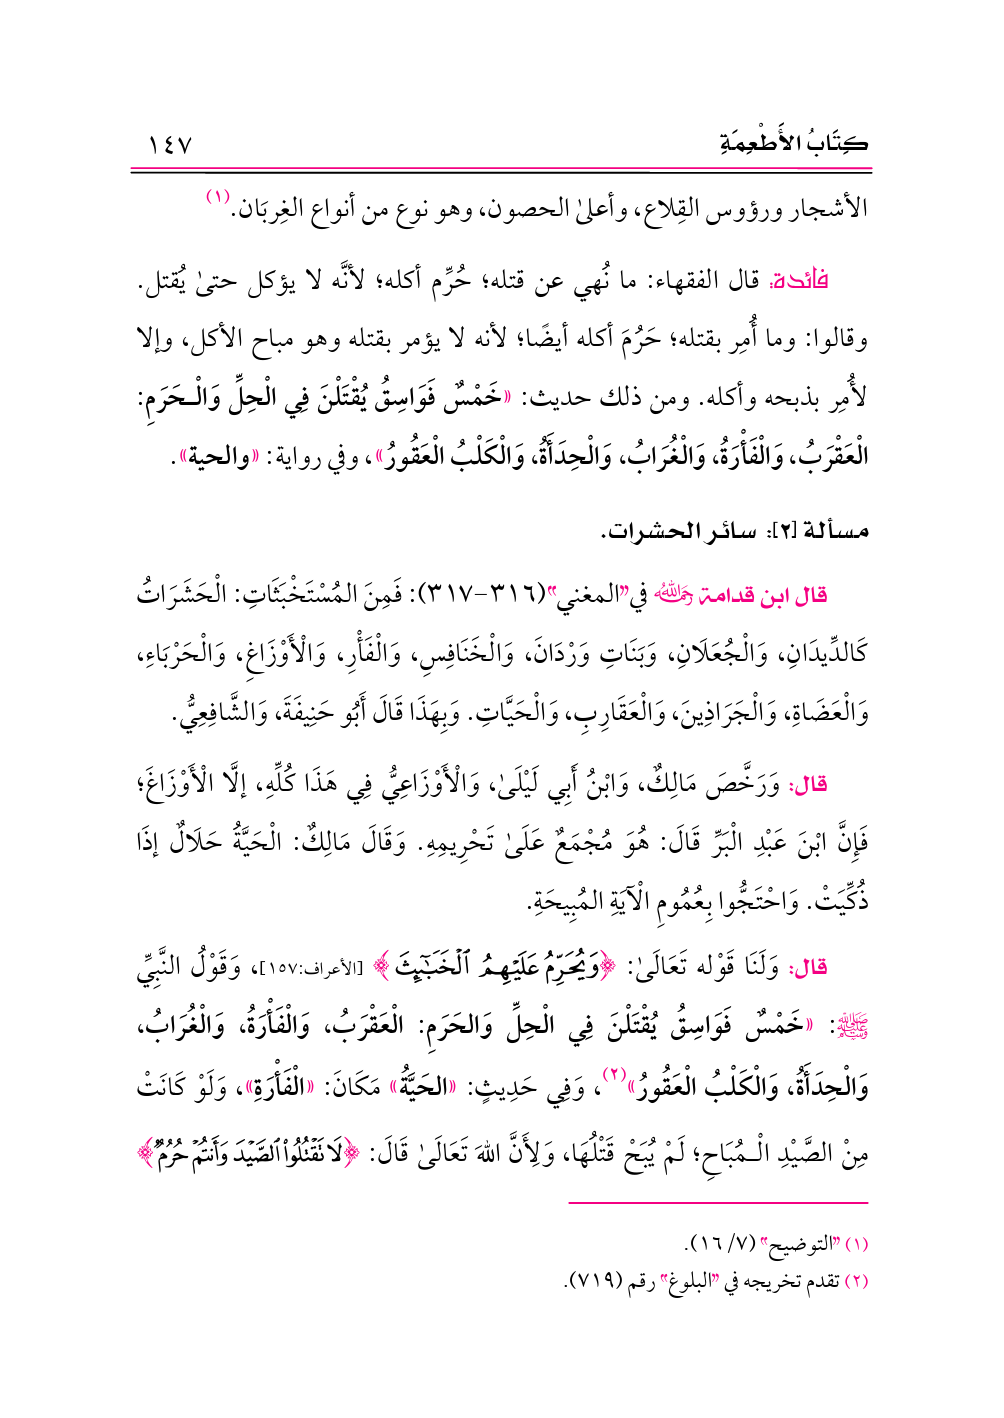 كِتَابُ الأَطْعِمَةِ ١٤٧
الأشجار ورؤوس القِلاع، وأعلىٰ الحصون، وهو نوع من أنواع الغِربَان.(١)
فائدة: قال الفقهاء: ما نُهي عن قتله؛ حُرِّم أكله؛ لأنَّه لا يؤكل حتىٰ يُقتل.
وقالوا: وما أُمِر بقتله؛ حَرُمَ أكله أيضًا؛ لأنه لا يؤمر بقتله وهو مباح الأكل، وإلا
لأُمِر بذبحه وأكله. ومن ذلك حديث: «خَمْسٌ فَوَاسِقُ يُقْتَلْنَ فِي الْحِلِّ وَالْـحَرَمِ:
الْعَقْرَبُ، وَالْفَأْرَةُ، وَالْغُرَابُ، وَالْحِدَأَةُ، وَالْكَلْبُ الْعَقُورُ»، وفي رواية: «والحية».
مسألة [٢]: سائر الحشرات.
قال ابن قدامة رَحِمَهُ اللهُ في "المغني"(٣١٦-٣١٧): فَمِنَ المُسْتَخْبَثَاتِ: الْحَشَرَاتُ
كَالدِّيدَانِ، وَالْجُعَلَانِ، وَبَنَاتِ وَرْدَانَ، وَالْخَنَافِسِ، وَالْفَأْرِ، وَالْأَوْزَاغِ، وَالْحَرْبَاءِ،
وَالْعَضَاةِ، وَالْجَرَاذِينَ، وَالْعَقَارِبِ، وَالْحَيَّاتِ. وَبِهَذَا قَالَ أَبُو حَنِيفَةَ، وَالشَّافِعِيُّ.
قال: وَرَخَّصَ مَالِكٌ، وَابْنُ أَبِي لَيْلَىٰ، وَالْأَوْزَاعِيُّ فِي هَذَا كُلِّهِ، إلَّا الْأَوْزَاغَ؛
فَإِنَّ ابْنَ عَبْدِ الْبَرِّ قَالَ: هُوَ مُجْمَعٌ عَلَىٰ تَحْرِيمِهِ. وَقَالَ مَالِكٌ: الْحَيَّةُ حَلَالٌ إذَا
ذُكِّيَتْ. وَاحْتَجُّوا بِعُمُومِ الْآيَةِ المُبِيحَةِ.
قال: وَلَنَا قَوْله تَعَالَىٰ: ﴿وَيُحَرِّمُ عَلَيْهِمُ ٱلْخَبَٰٓئِثَ﴾ [الأعراف:١٥٧]، وَقَوْلُ النَّبِيِّ
ﷺ: «خَمْسٌ فَوَاسِقُ يُقْتَلْنَ فِي الْحِلِّ وَالحَرَمِ: الْعَقْرَبُ، وَالْفَأْرَةُ، وَالْغُرَابُ،
وَالْحِدَأَةُ، وَالْكَلْبُ الْعَقُورُ»(٢)، وَفِي حَدِيثٍ: «الحَيَّةُ» مَكَانَ: «الْفَأْرَةِ»، وَلَوْ كَانَتْ
مِنْ الصَّيْدِ الْـمُبَاحِ؛ لَمْ يُبَحْ قَتْلُهَا، وَلِأَنَّ اللهَ تَعَالَىٰ قَالَ: ﴿لَا تَقْتُلُوا۟ ٱلصَّيْدَ وَأَنتُمْ حُرُمٌ﴾
(١) "التوضيح" (٧/ ١٦).
(٢) تقدم تخريجه في "البلوغ" رقم (٧١٩).